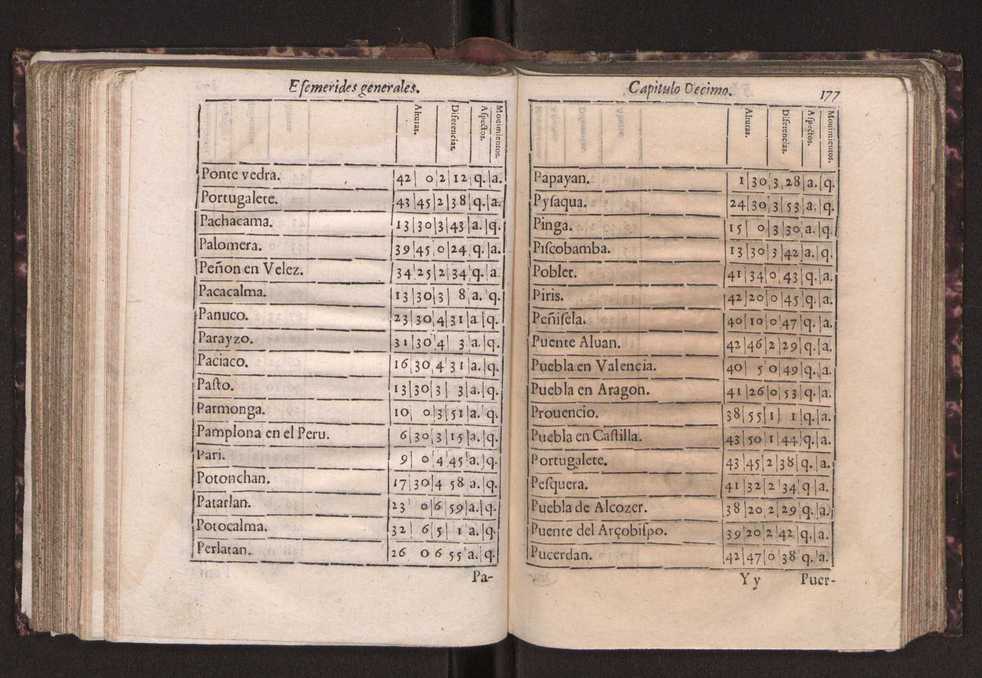 Efemerides generales.
Alturas. Diferencias. Aspectos. Mouimientos.
Ponte vedra. 42 0 2 12 q. a.
Portugalete. 43 45 2 38 q. a.
Pachacama. 13 30 3 43 a. q.
Palomera. 39 45 0 24 q. a.
Peñon en Velez. 34 25 2 34 q. a
Pacacalma. 13 30 3 8 a. q.
Panuco. 23 30 4 31 a q.
Parayzo. 31 30 4 3 a. q.
Paciaco. 16 30 4 31 a. q.
Paſto. 13 30 3 3 a. q.
Parmonga. 10 0 3 51 a. q.
Pamplona en el Peru. 6 30 3 15 a. q.
Pari. 9 0 4 45 a. q.
Potonchan. 17 30 4 58 a. q.
Patarlan. 23 0 6 59 a. q.
Potocalma. 32 6 5 1 a. q.
Perlatan. 26 0 6 55 a. q.
Pa-
Capitulo Decimo. 177
Alturas. Diferencias. Aſpectos. Mouimientos.
Papayan. 1 30 3 28 a. q.
Pyſaqua. 24 30 3 53 a. q.
Pinga. 15 0 3 30 a. q.
Piſcobamba. 13 30 3 42 a. q.
Poblet. 41 34 0 43 q. a.
Piris. 42 20 0 45 q. a.
Peñiſela. 40 10 0 47 q. a.
Puente Aluan. 42 46 2 29 q. a.
Puebla en Valencia. 40 5 0 49 q. a.
Puebla en Aragon. 41 26 0 53 q. a.
Prouencio. 38 55 1 1 q. a.
Puebla en Caſtilla. 43 50 1 44 q. a.
Portugalete. 43 45 2 38 q. a.
Peſquera. 41 32 2 34 q a.
Puebla de Alcozer. 38 20 2 29 q. a.
Puente del Arçobiſpo. 39 20 2 42 q. a.
Pucerdan. 42 47 0 38 q. a.
Y y Puer-